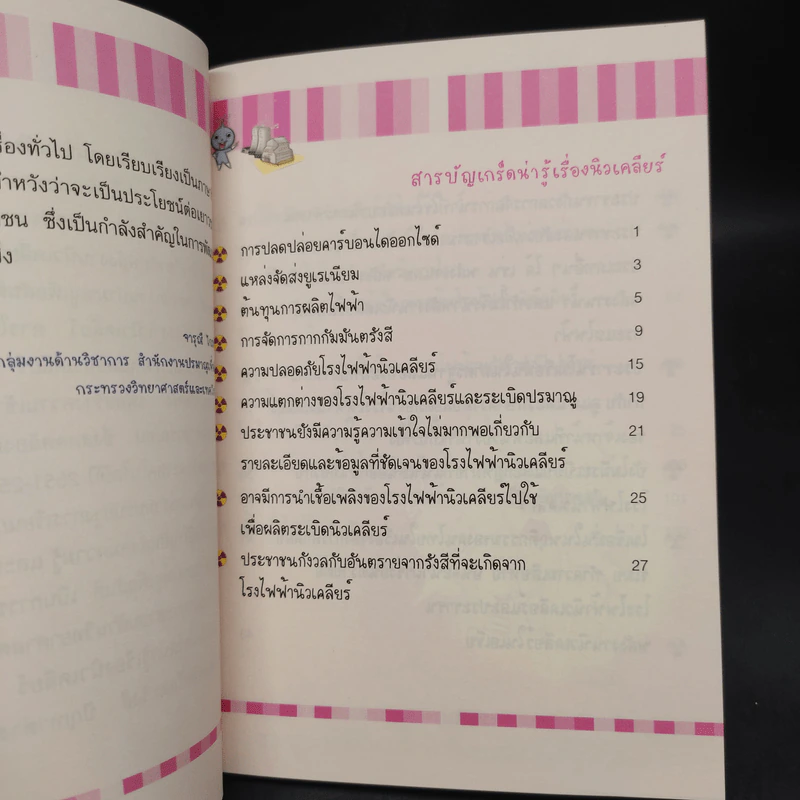 รื่องทั่วไป โดยเรียบเรียงเป็นภาษ
าหวังว่าจะเป็นประโยชน์ต่อเยาว
ชน ซึ่งเป็นกำลังสำคัญในการพัฒ
จารุณี
กลุ่มงานด้านวิชาการ สำนักงานปรมาณูเพื่
กระทรวงวิทยาศาสตร์และเทค
สารบัญเกร็ดน่ารู้เรื่องนิวเคลียร์
การปลดปล่อยคาร์บอนไดออกไซด์ 1
แหล่งจัดส่งยูเรเนียม 3
ต้นทุนการผลิตไฟฟ้า 5
การจัดการกากกัมมันตรังสี 9
ความปลอดภัยโรงไฟฟ้านิวเคลียร์ 15
ความแตกต่างของโรงไฟฟ้านิวเคลียร์และระเบิดปรมาณู 19
ประชาชนยังมีความรู้ความเข้าใจไม่มากพอเกี่ยวกับ 21
รายละเอียดและข้อมูลที่ชัดเจนของโรงไฟฟ้านิวเคลียร์
อาจมีการนำเชื้อเพลิงของโรงไฟฟ้านิวเคลียร์ไปใช้ 25
เพื่อผลิตระเบิดนิวเคลียร์
ประชาชนกังวลกับอันตรายจากรังสีที่จะเกิดจาก 27
โรงไฟฟ้านิวเคลียร์